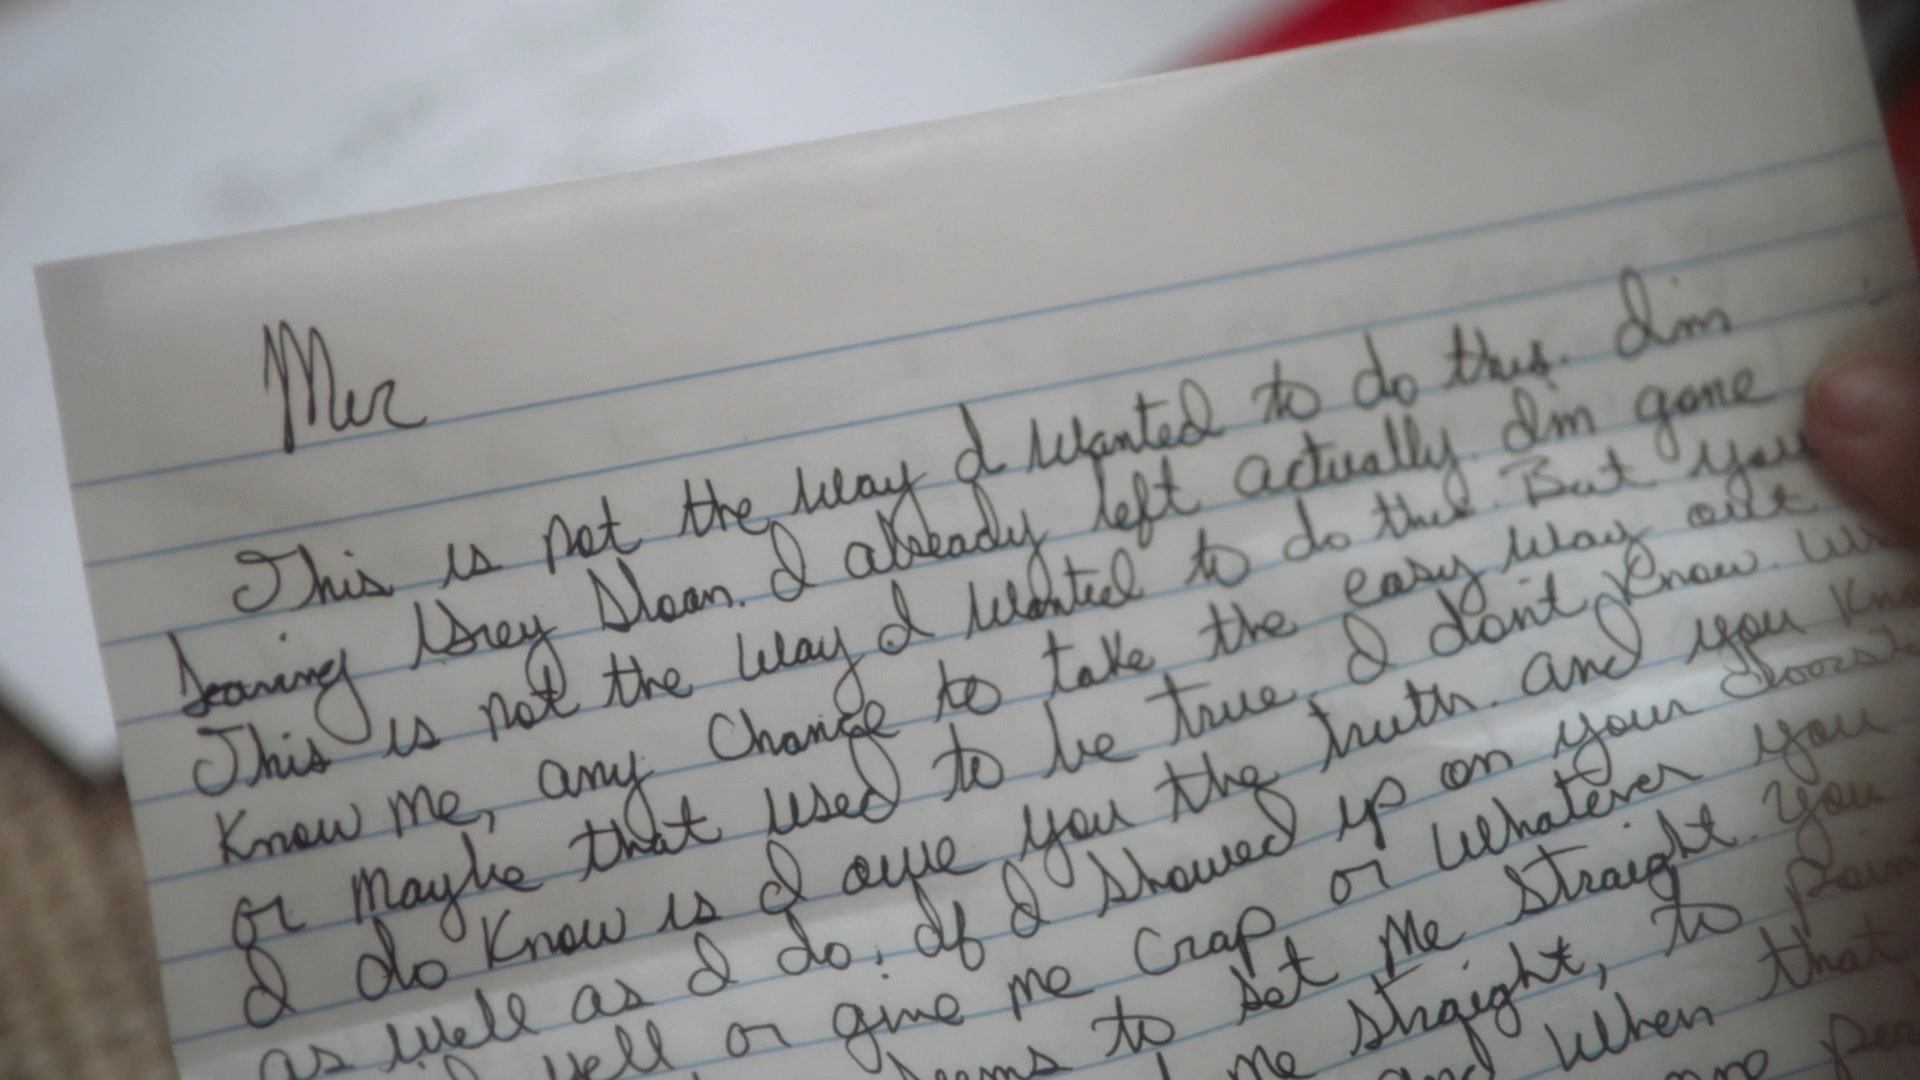 Mer
This is not the way I wanted to do this. I'm
Leaving Grey Sloan. I already left actually. I'm gone
This is not the way I wanted to do this. But you
know me, any chance to take the easy way out
or maybe that used to be true, I don't know.
I do know is I owe you the truth. and you
as well as I do. If I showed up on your
yell or give me crap or whatever you
to set me straight. you
me straight, to
and when that